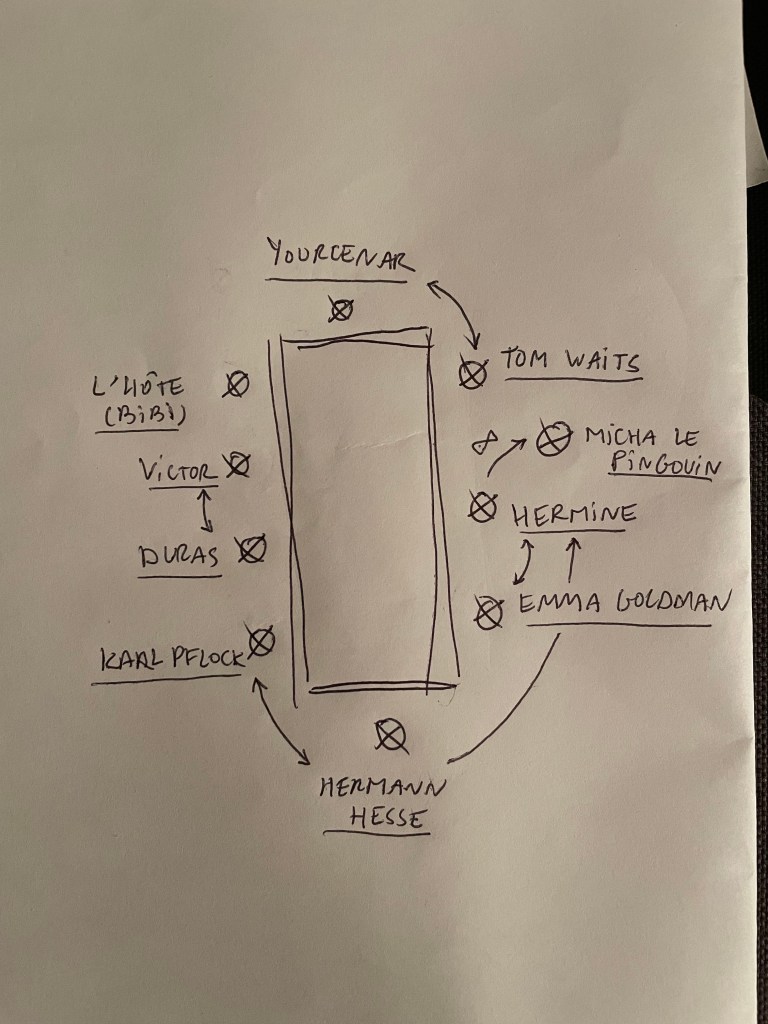 YOURCENAR
TOM WAiTS
L'HÔTE
(BiBi)
MiCHA LE
PiNGOUiN
ViCTOR
HERMiNE
DURAS
EMMA GOLDMAN
KARL PFLOCK
HERMANN
HESSE